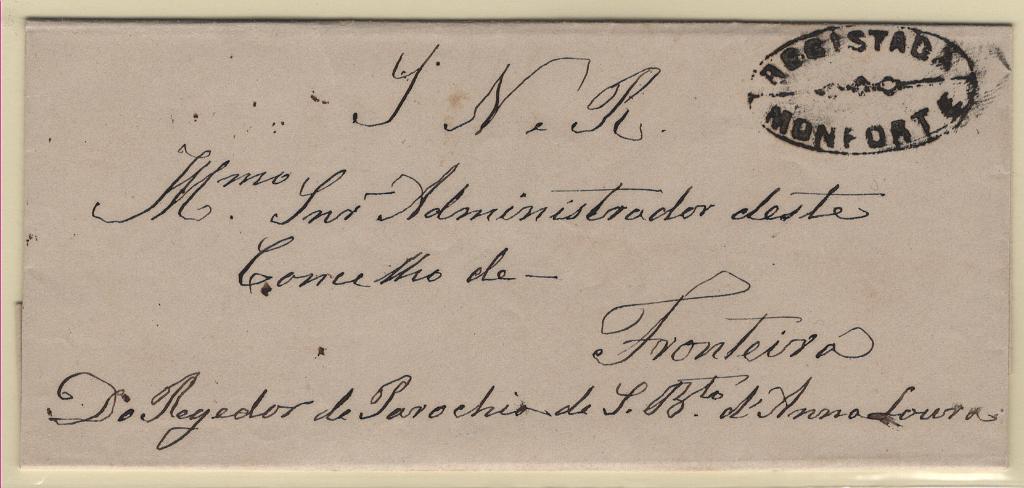 REGISTADA
MONFORTE
S. N. e R.
Illmo. Snr Administrador deste
Concelho de —
Fronteira
Do Regedor de Parochia de S. Bto. d'Anna Loura